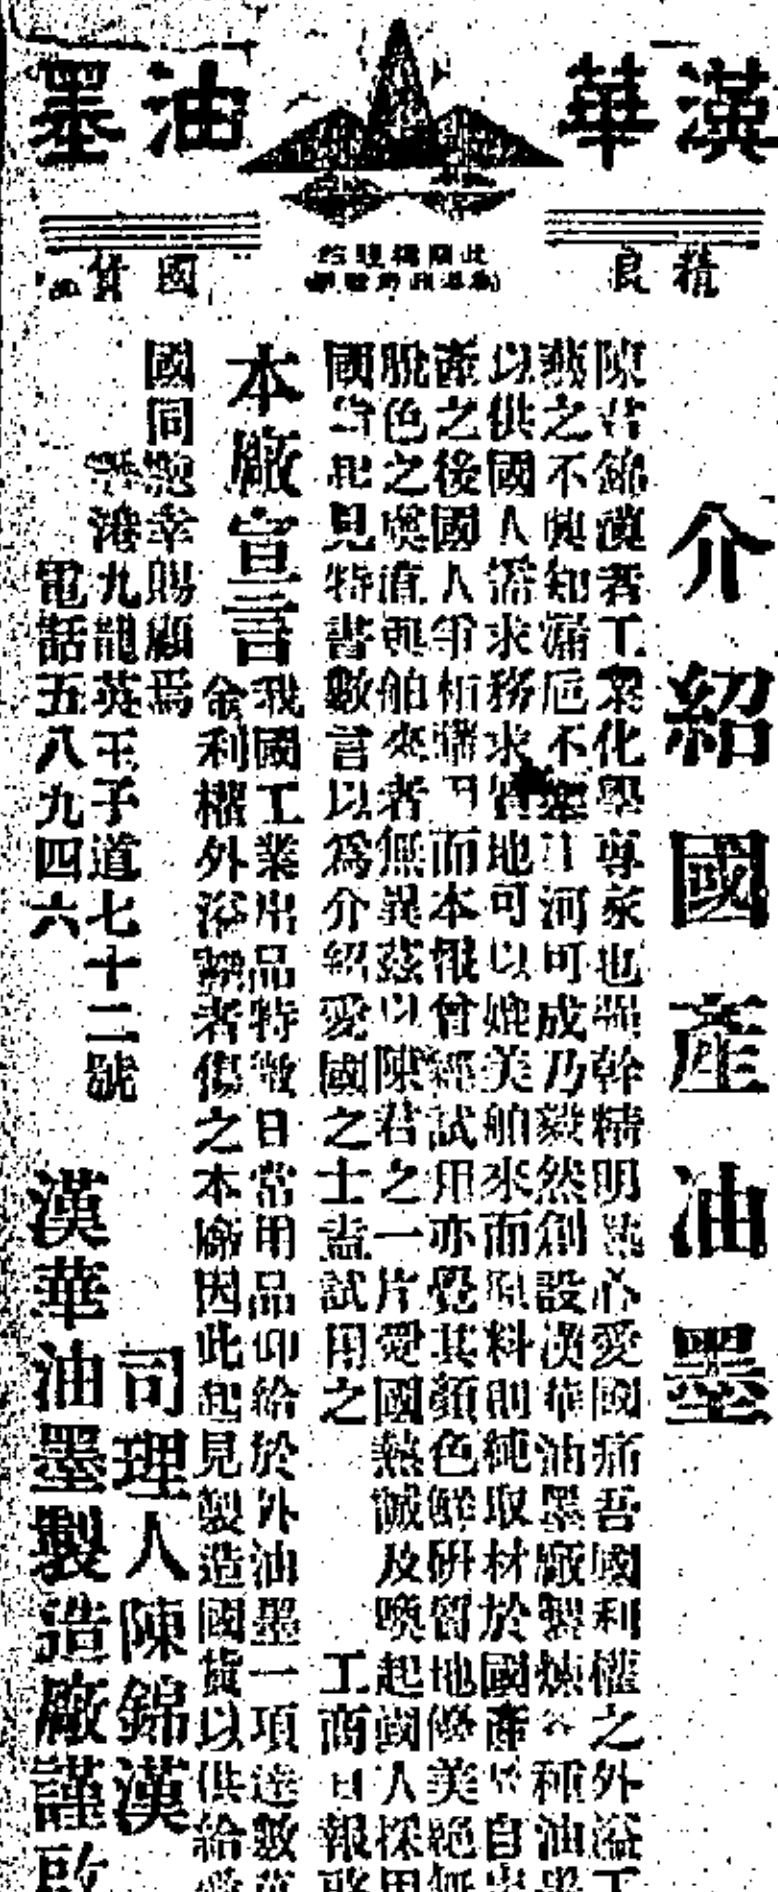 漢華 油墨
精良 國貨
介紹國產油墨
陳君錦漢者工業化學專家也 幹精明熱心愛國痛吾國利權之外溢工
藝之不興知漏巵不塞江河可成乃毅然創設漢華油墨廠製煉各種油墨
以供國人需求務求 地可以媲美舶來而原料則純取材於國產 自出
產之後國人爭相購用而本報曾經試用亦覺其顏色鮮研質地優美絕無
脫色之虞直與舶來者無異茲以陳君之一片愛國熱誠及喚起國人採用
國 起見特書數言以為介紹愛國之士盍試用之 工商日報啟
本廠宣言
我國工業出品特微日常用品仰給於外油墨一項達數萬
金利權外溢 者傷之本廠因此起見製造國貨以供給愛
國同 幸賜顧焉
香港九龍英王子道七十二號
電話五八九四六
司理人陳錦漢
漢華油墨製造廠謹啟